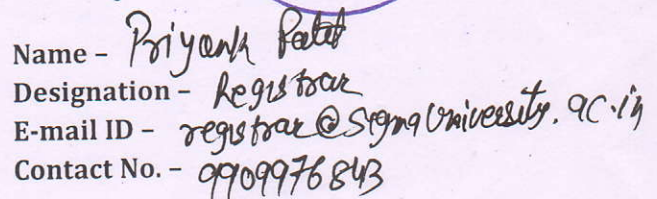 Name – Priyank Patel
Designation – Registrar
E-mail ID – registrar@sigmaUniversity.ac.in
Contact No. – 9909976843